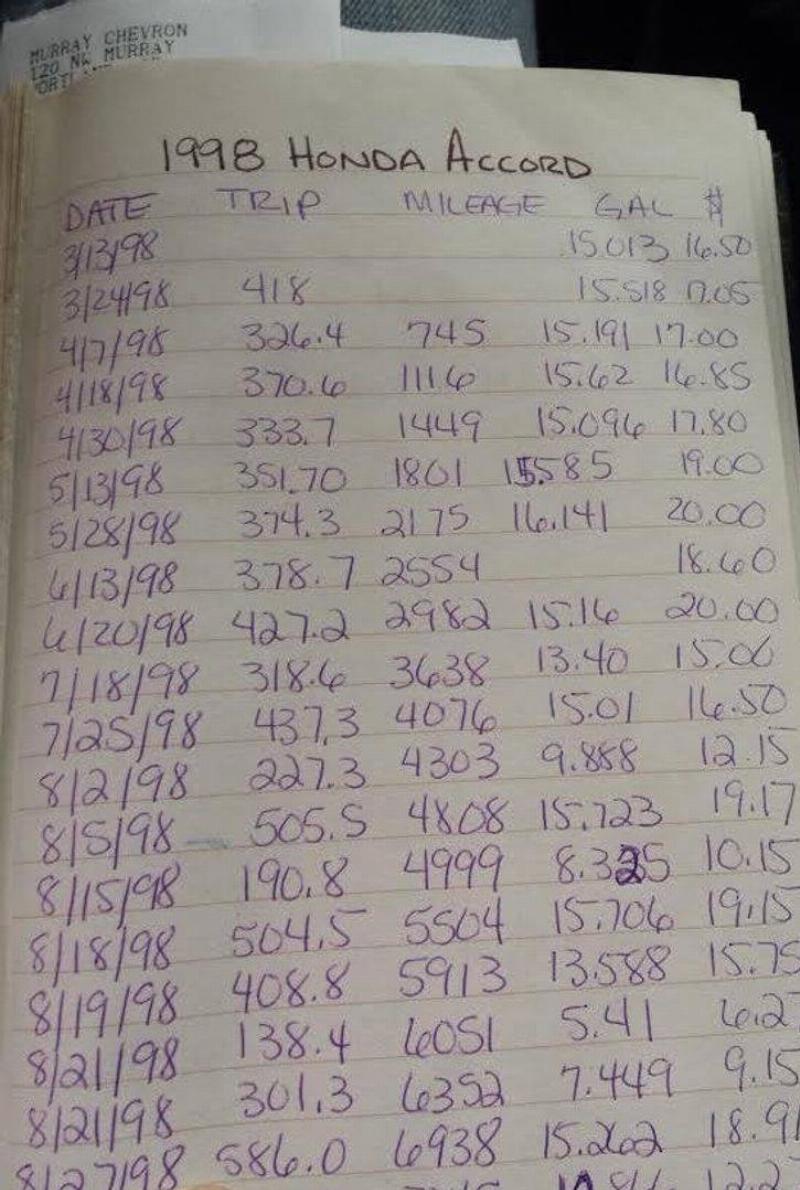 MURRAY CHEVRON
120 NW MURRAY
1998 HONDA ACCORD
DATE TRIP MILEAGE GAL #
3/13/98 15.013 16.50
3/24/98 418 15.518 17.05
4/7/98 326.4 745 15.191 17.00
4/18/98 370.6 1116 15.62 16.85
4/30/98 333.7 1449 15.096 17.80
5/13/98 351.70 1801 15.585 19.00
5/28/98 374.3 2175 16.141 20.00
6/13/98 378.7 2554 18.60
6/20/98 427.2 2982 15.16 20.00
7/18/98 318.6 3638 13.40 15.06
7/25/98 437.3 4076 15.01 16.50
8/2/98 227.3 4303 9.888 12.15
8/5/98 505.5 4808 15.723 19.17
8/15/98 190.8 4999 8.325 10.15
8/18/98 504.5 5504 15.706 19.15
8/19/98 408.8 5913 13.588 15.75
8/21/98 138.4 6051 5.41 6.2
8/21/98 301.3 6352 7.449 9.15
8/27/98 586.0 6938 15.262 18.91